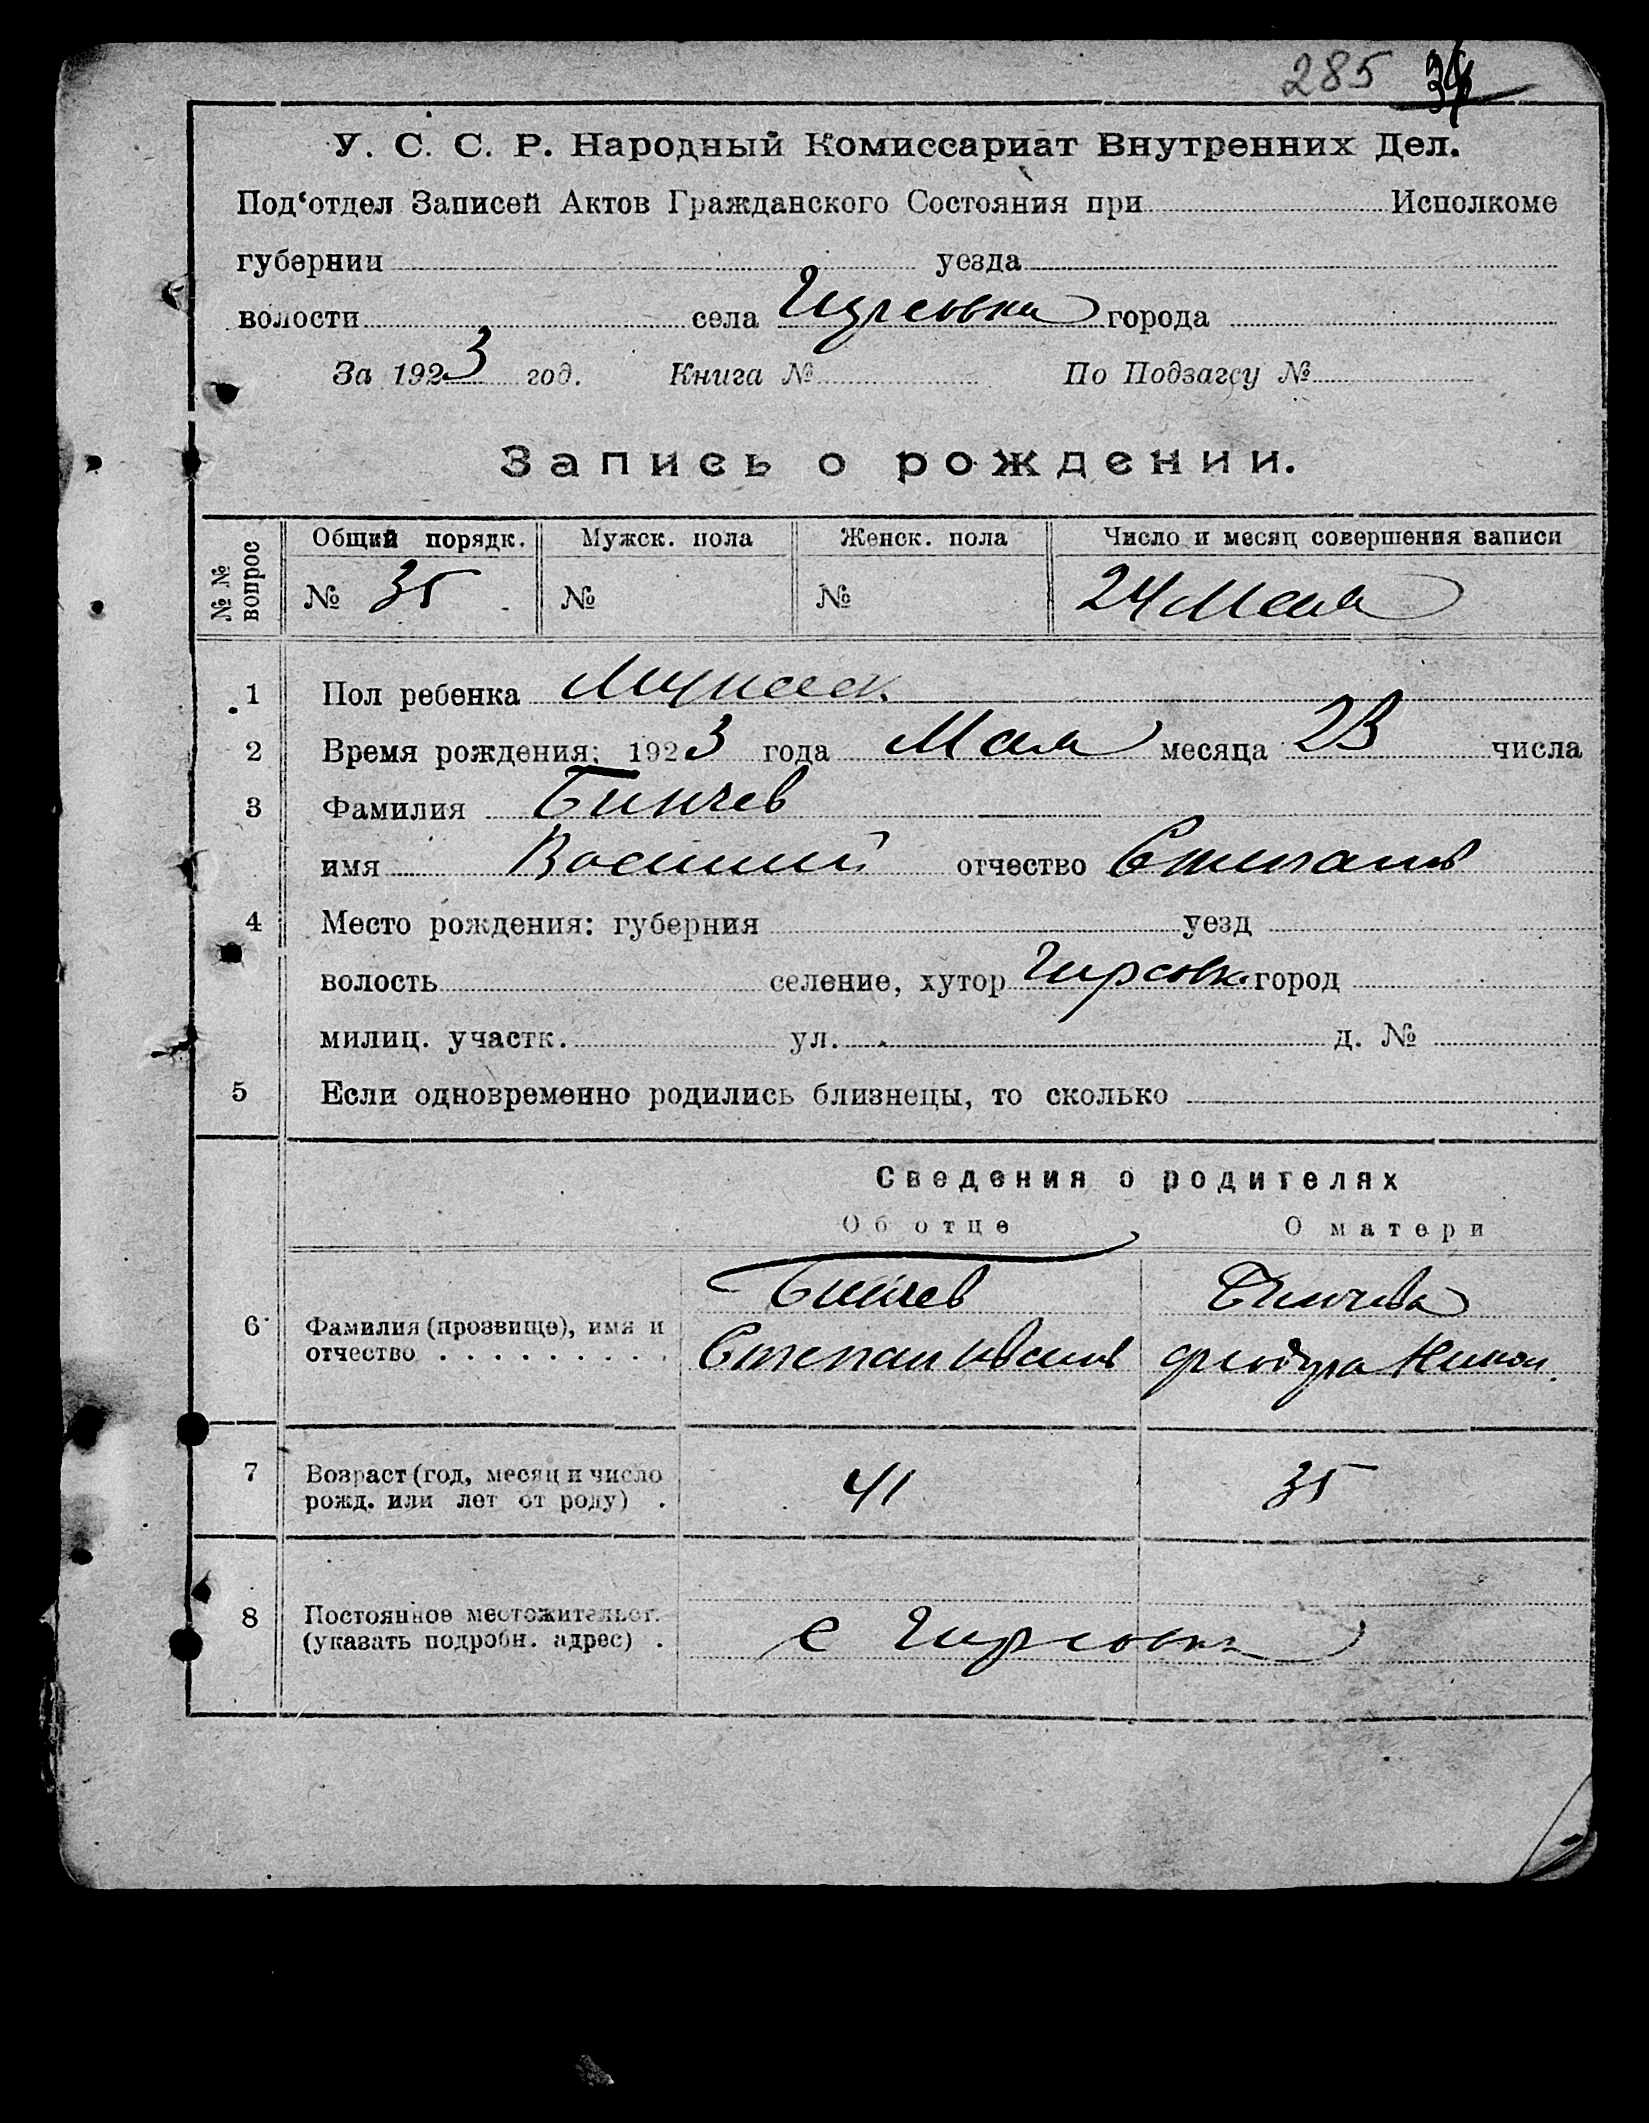 285 34
У. С. С. Р. Народный Комиссариат Внутренних Дел.
Под‘отдел Записей Актов Гражданского Состояния при Исполкоме
губернии уезда
волости села Гирсовка города
За 1923 год. Книга № По Подзагсу №
Запись о рождении.
№№ вопрос Общий порядк. Мужск. пола Женск. пола Число и месяц совершения записи
№ 35 № № 24 Мая
1 Пол ребенка Мужеск.
2 Время рождения: 1923 года Мая месяца 23 числа
3 Фамилия Бинчев
имя Василий отчество Степанов
4 Место рождения: губерния уезд
волость селение, хутор Гирсовк. город
милиц. участк. ул. д. №
5 Если одновременно родились близнецы, то сколько
Сведения о родителях
Об отце О матери
Бинчев Бинчева
6 Фамилия (прозвище), имя и
отчество . . . . . . . . . Степан Иванов Федора Никол.
7 Возраст (год, месяц и число
рожд. или лет от роду) . 41 35
8 Постоянное местожительст.
(указать подробн. адрес) . с Гирсовка